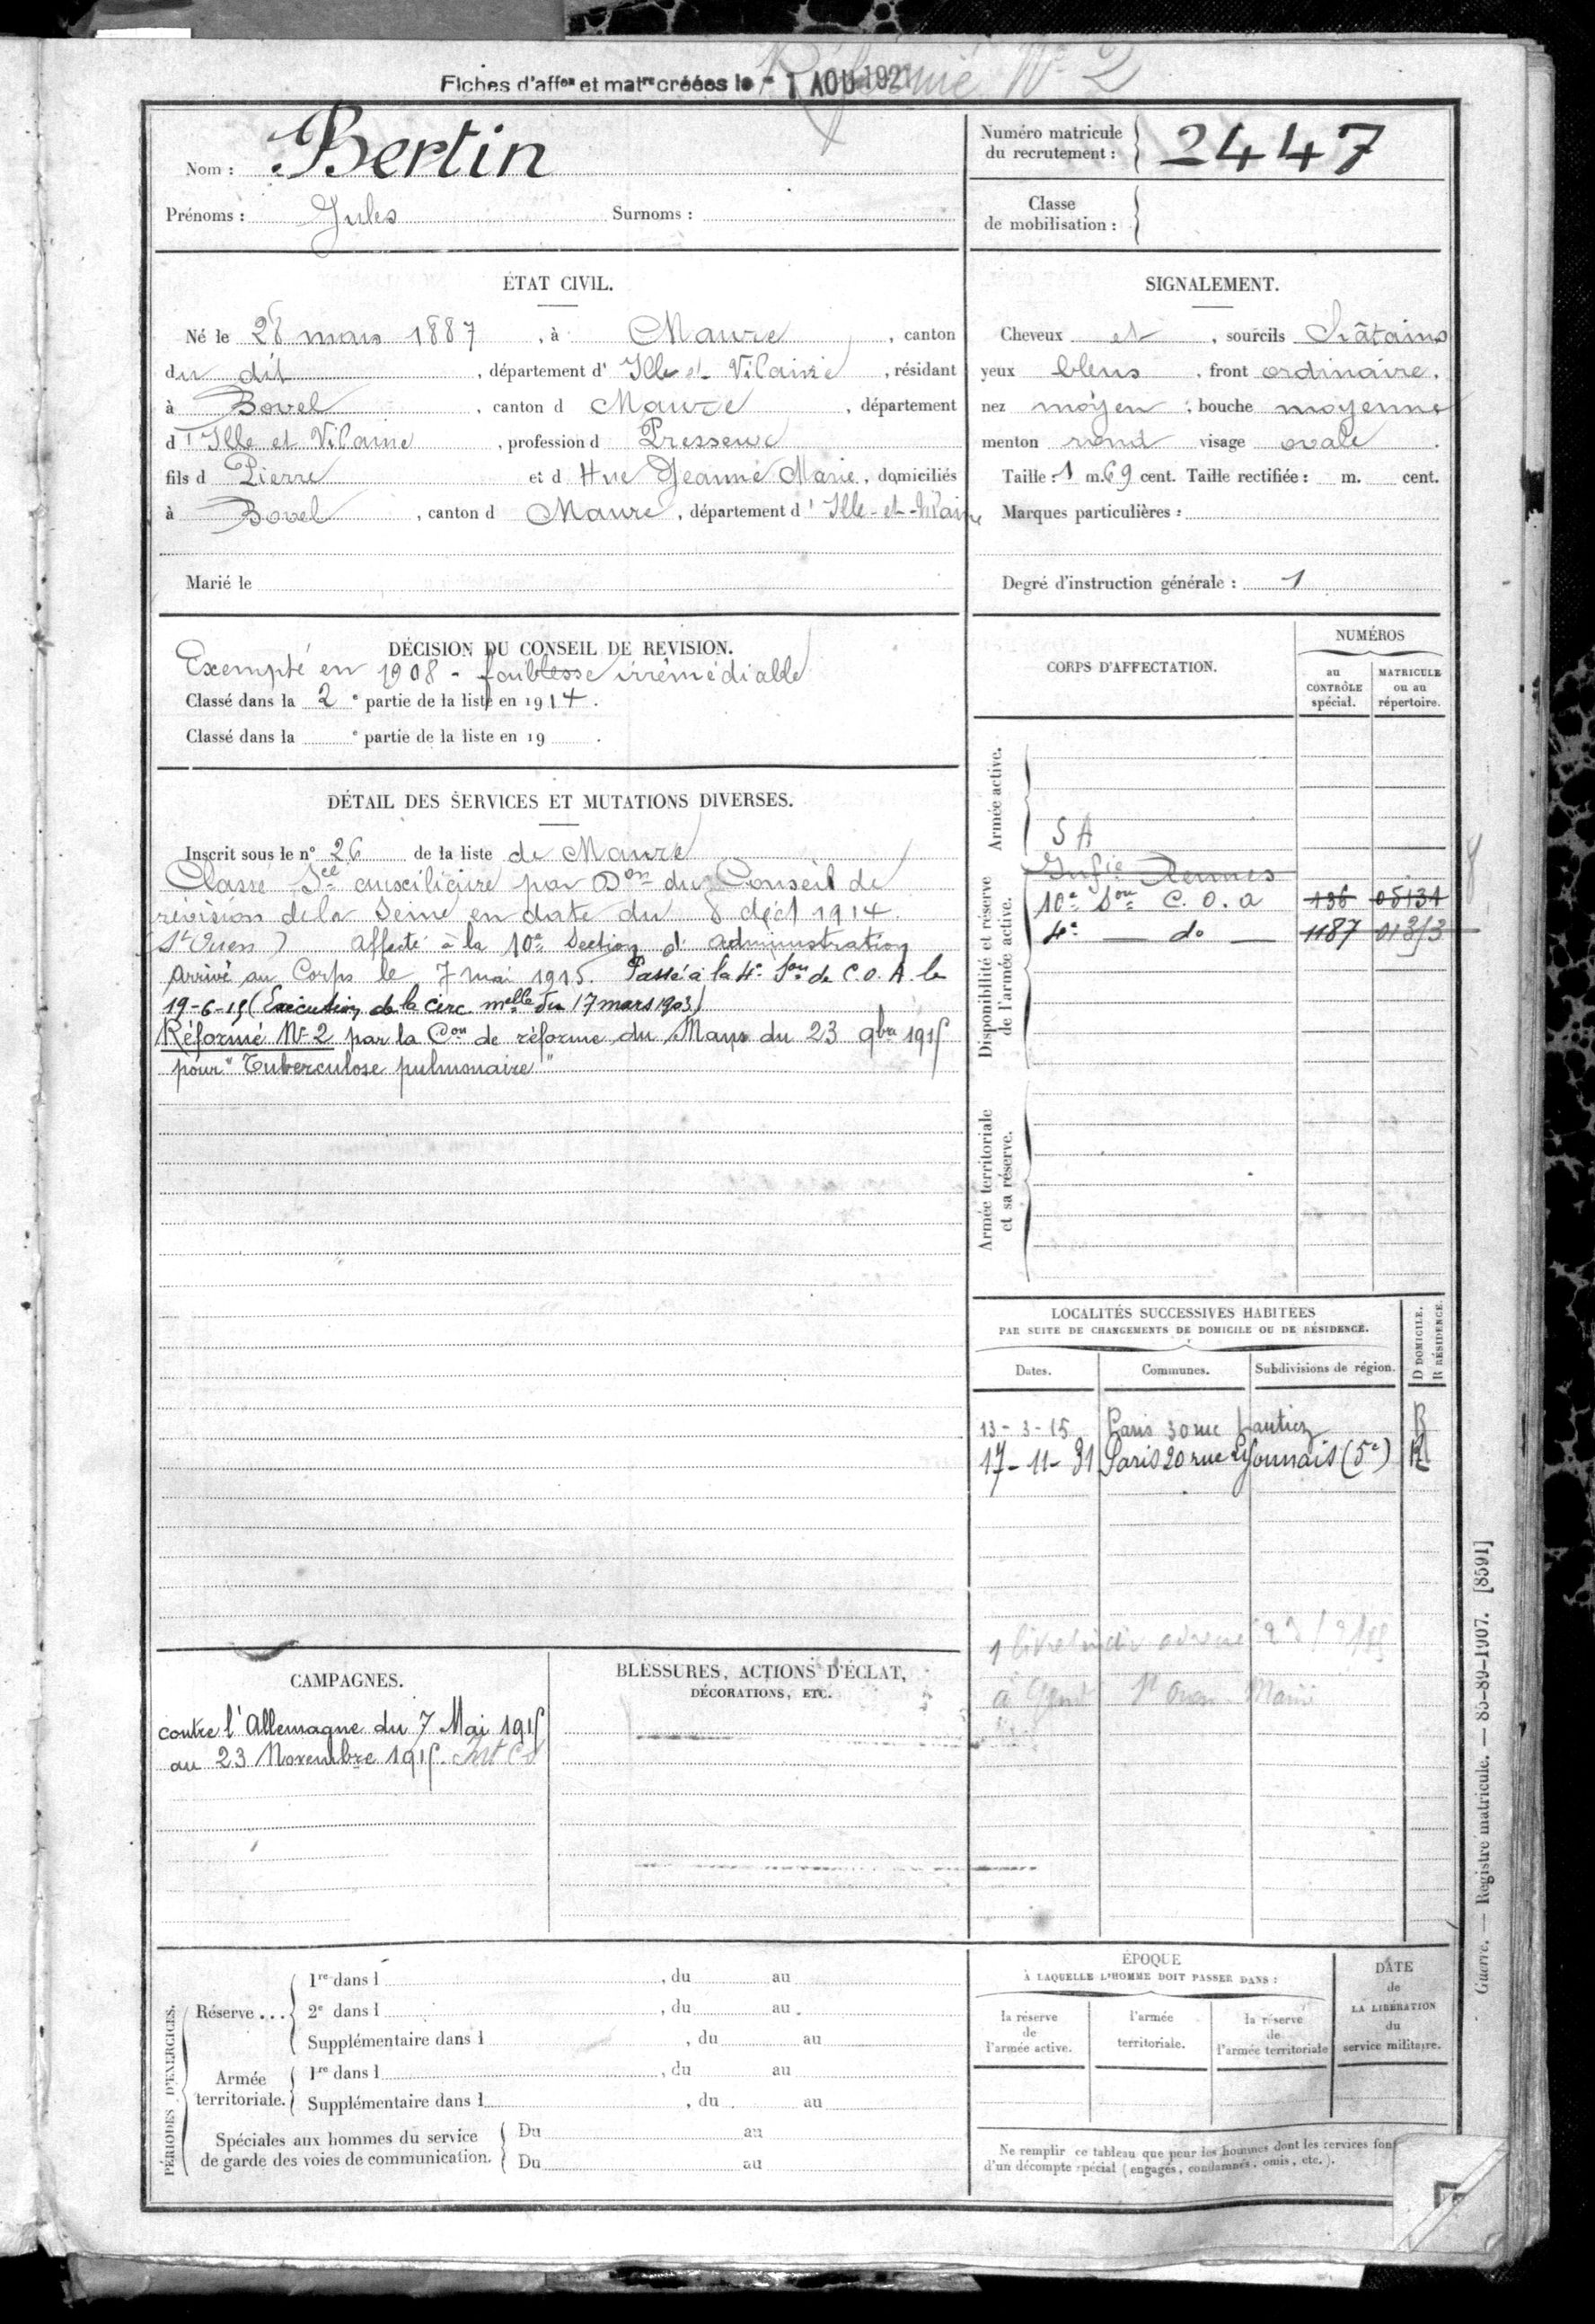 Réformé N° 2
Fiches d'affon et matre créées le - 1 AOU 1921
Nom : Bertin
Prénoms : Jules Surnoms :
Numéro matricule
du recrutement : 2447
Classe
de mobilisation :
ÉTAT CIVIL.
Né le 28 mars 1887, à Maure, canton
du dit, département d' Ille et Vilaine, résidant
à Bovel, canton d Maure, département
d' Ille et Vilaine, profession d Presseur
fils d Pierre et d Hue Jeanne Marie, domiciliés
à Bovel, canton d Maure, département d' Ille-et-Vilaine
Marié le
SIGNALEMENT.
Cheveux et, sourcils Châtains
yeux bleus, front ordinaire,
nez moyen, bouche moyenne
menton rond visage ovale.
Taille : 1 m. 69 cent. Taille rectifiée : m. cent.
Marques particulières :
Degré d'instruction générale : 1
DÉCISION DU CONSEIL DE REVISION.
Exempté en 1908 - faiblesse irrémédiable
Classé dans la 2e partie de la liste en 1914.
Classé dans la e partie de la liste en 19 .
DÉTAIL DES SERVICES ET MUTATIONS DIVERSES.
Inscrit sous le n° 26 de la liste de Maure
Classé Sce auxiliaire par Don du Conseil de
révision de la Seine en date du 8 déct 1914
(St Ouen) affecté à la 10e Section d'administration
arrivé au Corps le 7 mai 1915. Passé à la 4e Son de C.O.A. le
19-6-15 (Exécution de la circ. melle du 17 mars 1903)
Réformé N° 2 par la Con de réforme du Mans du 23 9bre 1915
pour "Tuberculose pulmonaire"
CORPS D'AFFECTATION.
NUMÉROS
au
CONTRÔLE
spécial.
MATRICULE
ou au
répertoire.
Armée active.
S A
Disponibilité et réserve
de l'armée active.
Infie Rennes
10e Son C.O.A 136 05131
4e — do — 1187 01313
Armée territoriale
et sa réserve.
LOCALITÉS SUCCESSIVES HABITÉES
PAR SUITE DE CHANGEMENTS DE DOMICILE OU DE RÉSIDENCE.
Dates. Communes. Subdivisions de région. D DOMICILE. R RÉSIDENCE.
13-3-15 Paris 30 rue Lantiez R
17-11-31 Paris 20 rue Lyonnais (5e) R
CAMPAGNES.
contre l'Allemagne du 7 Mai 1915
au 23 Novembre 1915.
BLESSURES, ACTIONS D'ÉCLAT,
DÉCORATIONS, ETC.
PÉRIODES D'EXERCICES.
Réserve...
1re dans l , du au
2e dans l , du au
Supplémentaire dans l , du au
Armée
territoriale.
1re dans l , du au
Supplémentaire dans l , du au
Spéciales aux hommes du service
de garde des voies de communication.
Du au
Du au
ÉPOQUE
À LAQUELLE L'HOMME DOIT PASSER DANS :
la réserve
de
l'armée active.
l'armée
territoriale.
la réserve
de
l'armée territoriale
DATE
de
LA LIBÉRATION
du
service militaire.
Ne remplir ce tableau que pour les hommes dont les services font
d'un décompte spécial (engagés, condamnés, omis, etc.).
Guerre. — Registre matricule. — 85-89-1907. [8591]